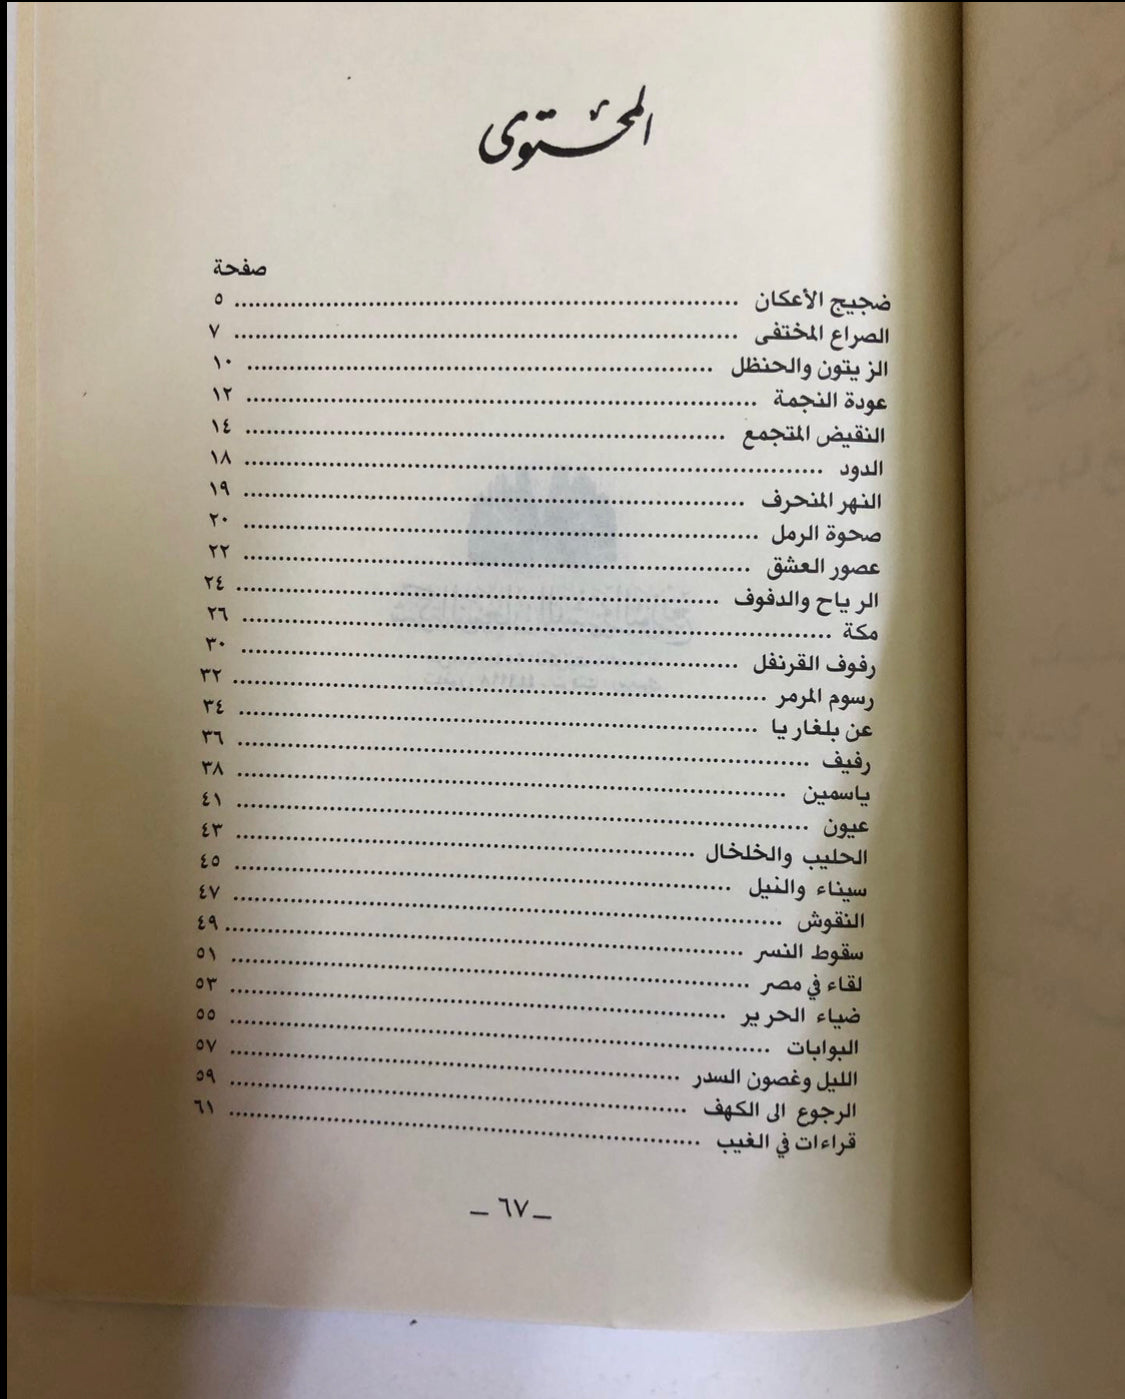 المحتوى
صفحة
ضجيج الأعكان ........ ٥
الصراع المختفى ........ ٧
الزيتون والحنظل ........ ١٠
عودة النجمة ........ ١٢
النقيض المتجمع ........ ١٤
الدود ........ ١٨
النهر المنحرف ........ ١٩
صحوة الرمل ........ ٢٠
عصور العشق ........ ٢٢
الرياح والدفوف ........ ٢٤
مكة ........ ٢٦
رفوف القرنفل ........ ٣٠
رسوم المرمر ........ ٣٢
عن بلغاريا ........ ٣٤
رفيف ........ ٣٦
ياسمين ........ ٣٨
عيون ........ ٤١
الحليب والخلخال ........ ٤٣
سيناء والنيل ........ ٤٥
النقوش ........ ٤٧
سقوط النسر ........ ٤٩
لقاء في مصر ........ ٥١
ضياء الحرير ........ ٥٣
البوابات ........ ٥٥
الليل وغصون السدر ........ ٥٧
الرجوع الى الكهف ........ ٥٩
قراءات في الغيب ........ ٦١
ـ ٦٧ ـ